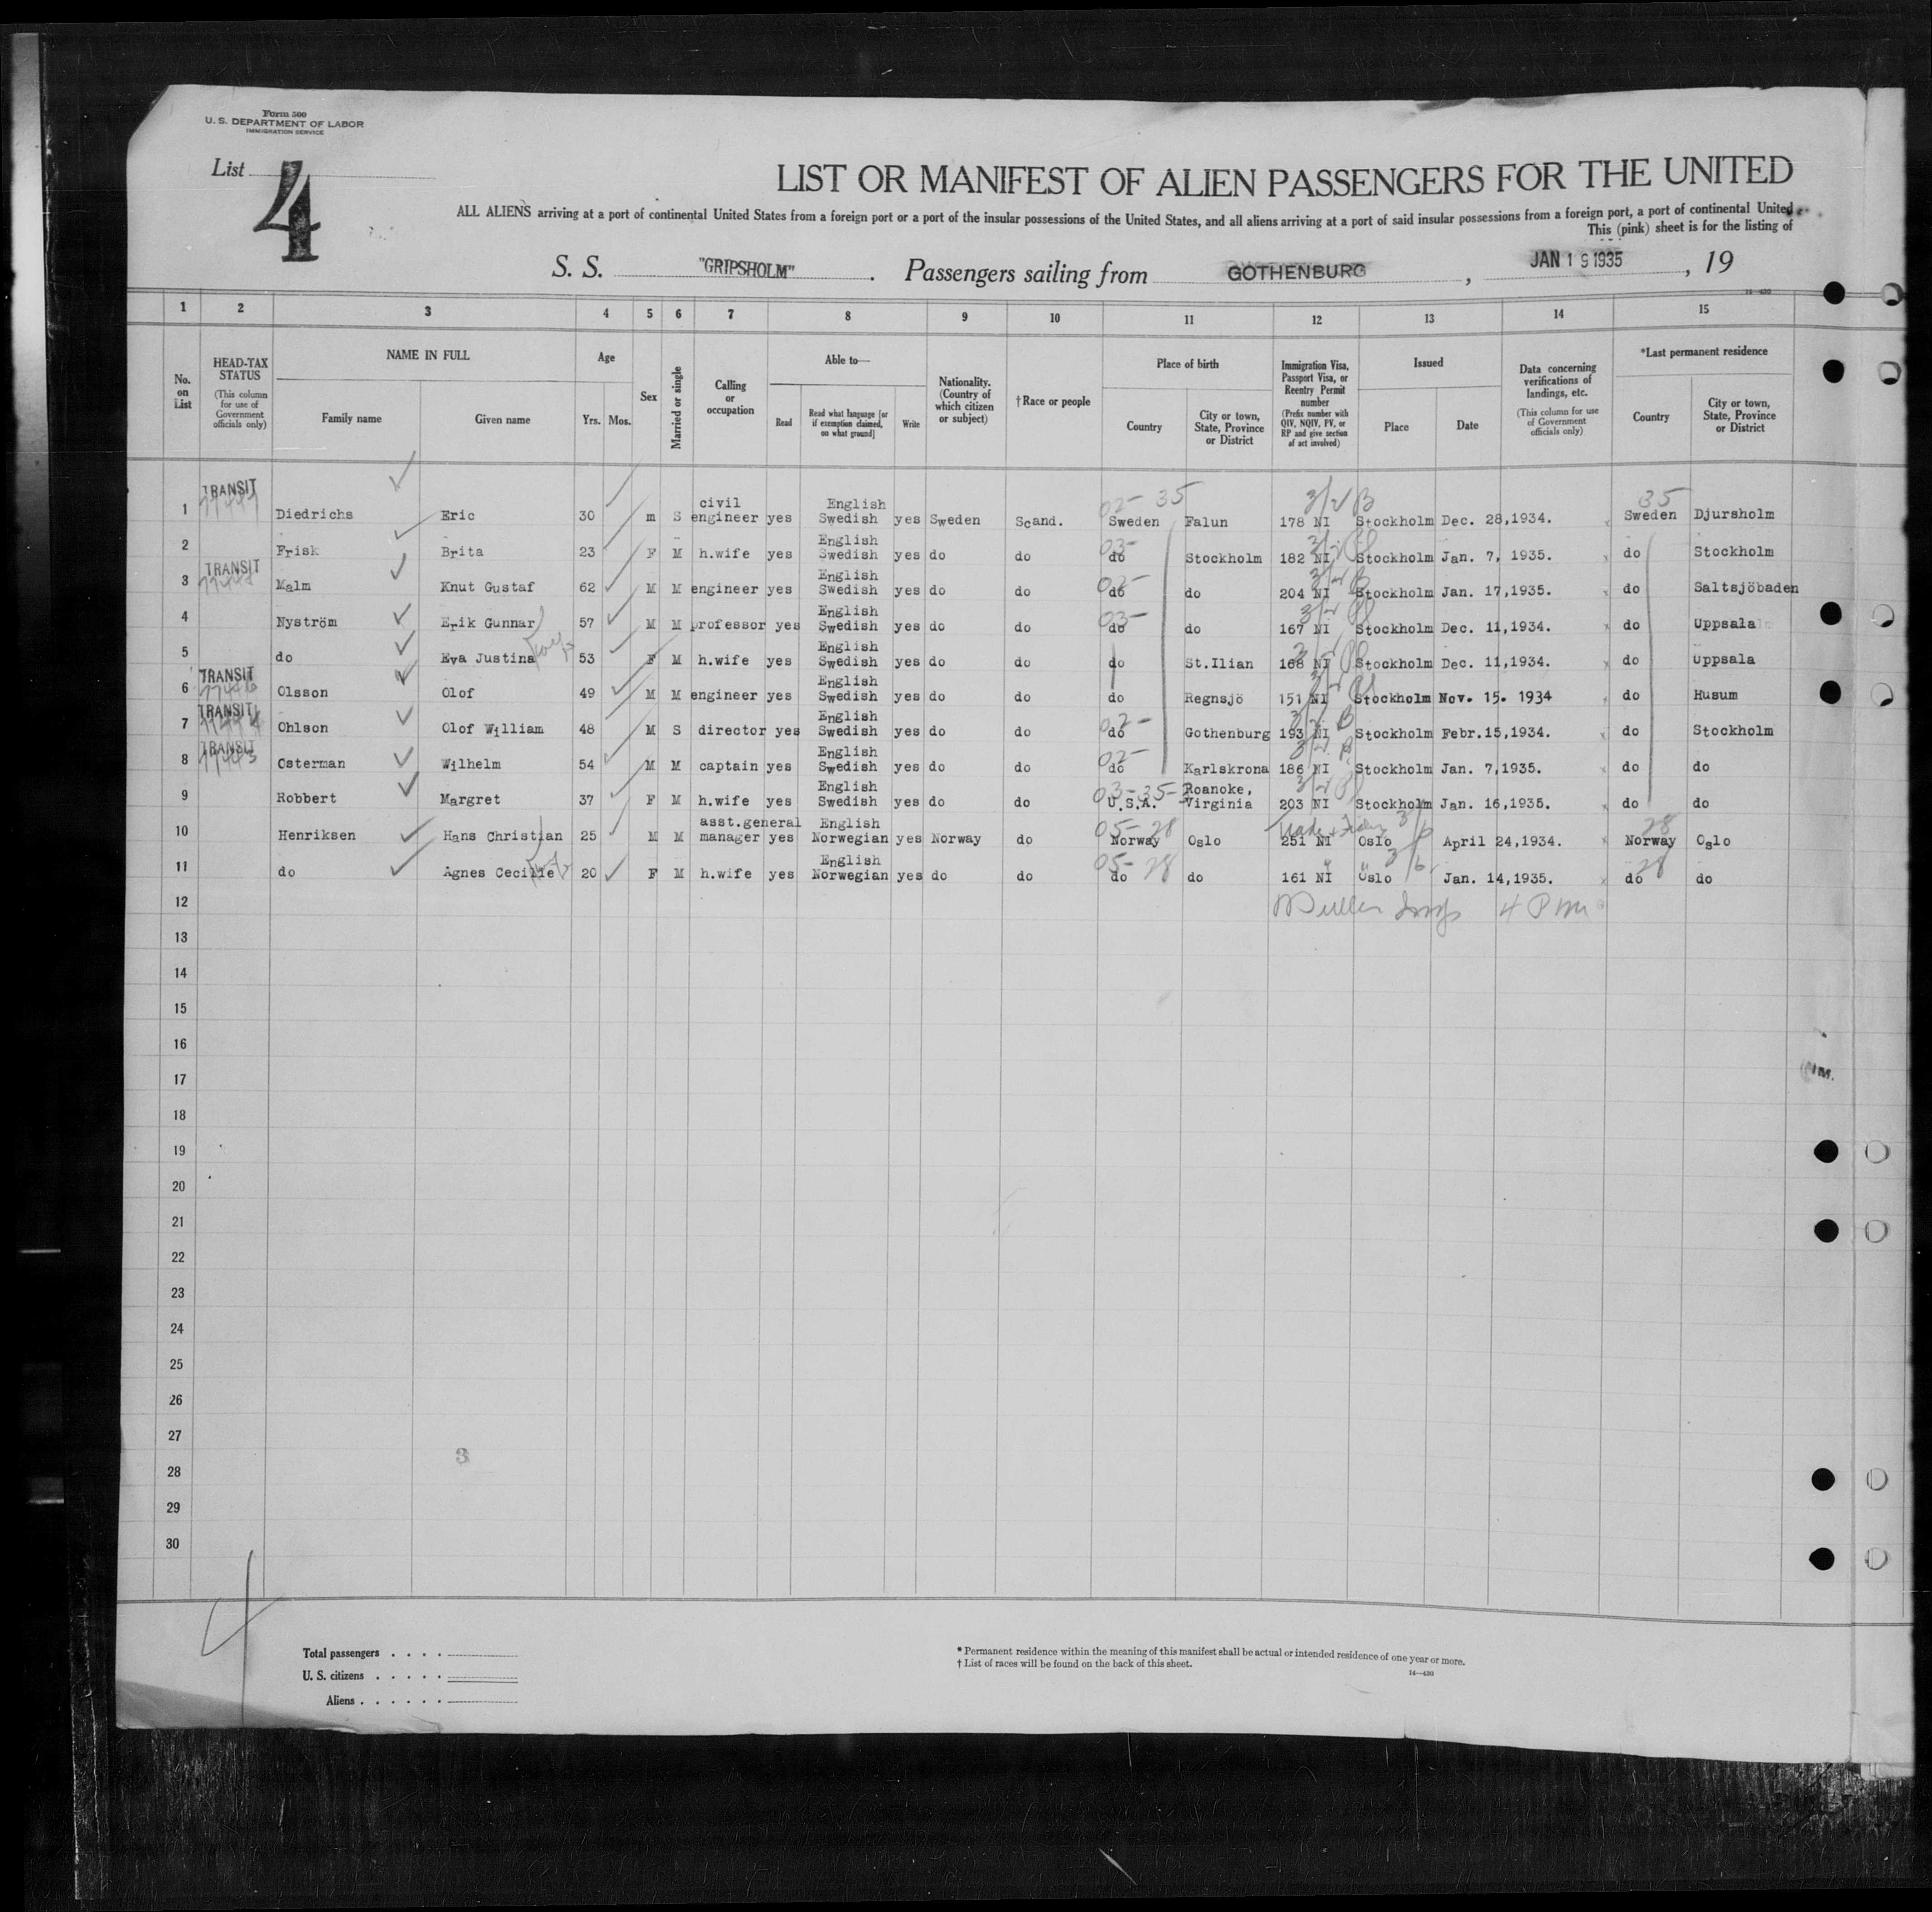 Form 500
U. S. DEPARTMENT OF LABOR
IMMIGRATION SERVICE
List 4
LIST OR MANIFEST OF ALIEN PASSENGERS FOR THE UNITED
ALL ALIENS arriving at a port of continental United States from a foreign port or a port of the insular possessions of the United States, and all aliens arriving at a port of said insular possessions from a foreign port, a port of continental United
This (pink) sheet is for the listing of
S. S. "GRIPSHOLM". Passengers sailing from GOTHENBURG, JAN 19 1935, 19
1 2 3 4 5 6 7 8 9 10 11 12 13 14 15
No. on List
HEAD-TAX STATUS (This column for use of Government officials only)
NAME IN FULL
Family name Given name
Age
Yrs. Mos.
Sex
Married or single
Calling or occupation
Able to—
Read Read what language [or if exemption claimed, on what ground] Write
Nationality. (Country of which citizen or subject)
†Race or people
Place of birth
Country City or town, State, Province or District
Immigration Visa, Passport Visa, or Reentry Permit number (Prefix number with QIV, NQIV, PV, or RP and give section of act involved)
Issued
Place Date
Data concerning verifications of landings, etc. (This column for use of Government officials only)
*Last permanent residence
Country City or town, State, Province or District
1 TRANSIT Diedrichs Eric 30 m S civil engineer yes English Swedish yes Sweden Scand. 02- 35 Sweden Falun 178 NI Stockholm Dec. 28,1934. 35 Sweden Djursholm
2 Frisk Brita 23 F M h.wife yes English Swedish yes do do 03- do Stockholm 182 NI Stockholm Jan. 7, 1935. do Stockholm
3 TRANSIT Malm Knut Gustaf 62 M M engineer yes English Swedish yes do do 02- do do 204 NI Stockholm Jan. 17,1935. do Saltsjöbaden
4 Nyström Erik Gunnar 57 M M professor yes English Swedish yes do do 03- do do 167 NI Stockholm Dec. 11,1934. do Uppsala
5 do Eva Justina 53 F M h.wife yes English Swedish yes do do do St.Ilian 168 NI Stockholm Dec. 11,1934. do Uppsala
6 TRANSIT Olsson Olof 49 M M engineer yes English Swedish yes do do do Regnsjö 151 NI Stockholm Nov. 15. 1934 do Husum
7 TRANSIT Ohlson Olof William 48 M S director yes English Swedish yes do do 02- do Gothenburg 193 NI Stockholm Febr.15,1934. do Stockholm
8 TRANSIT Osterman Wilhelm 54 M M captain yes English Swedish yes do do 02- do Karlskrona 186 NI Stockholm Jan. 7,1935. do do
9 Robbert Margret 37 F M h.wife yes English Swedish yes do do 03-35- U.S.A. Roanoke, Virginia 203 NI Stockholm Jan. 16,1935. do do
10 Henriksen Hans Christian 25 M M asst.general manager yes English Norwegian yes Norway do 05-28 Norway Oslo 251 NI Oslo April 24,1934. 28 Norway Oslo
11 do Agnes Cecilie 20 F M h.wife yes English Norwegian yes do do 05-28 do do 161 NI Oslo Jan. 14,1935. 28 do do
12 4 PM
13
14
15
16
17
18
19
20
21
22
23
24
25
26
27
28
29
30
3
4
Total passengers
U. S. citizens
Aliens
* Permanent residence within the meaning of this manifest shall be actual or intended residence of one year or more.
† List of races will be found on the back of this sheet.
14—430